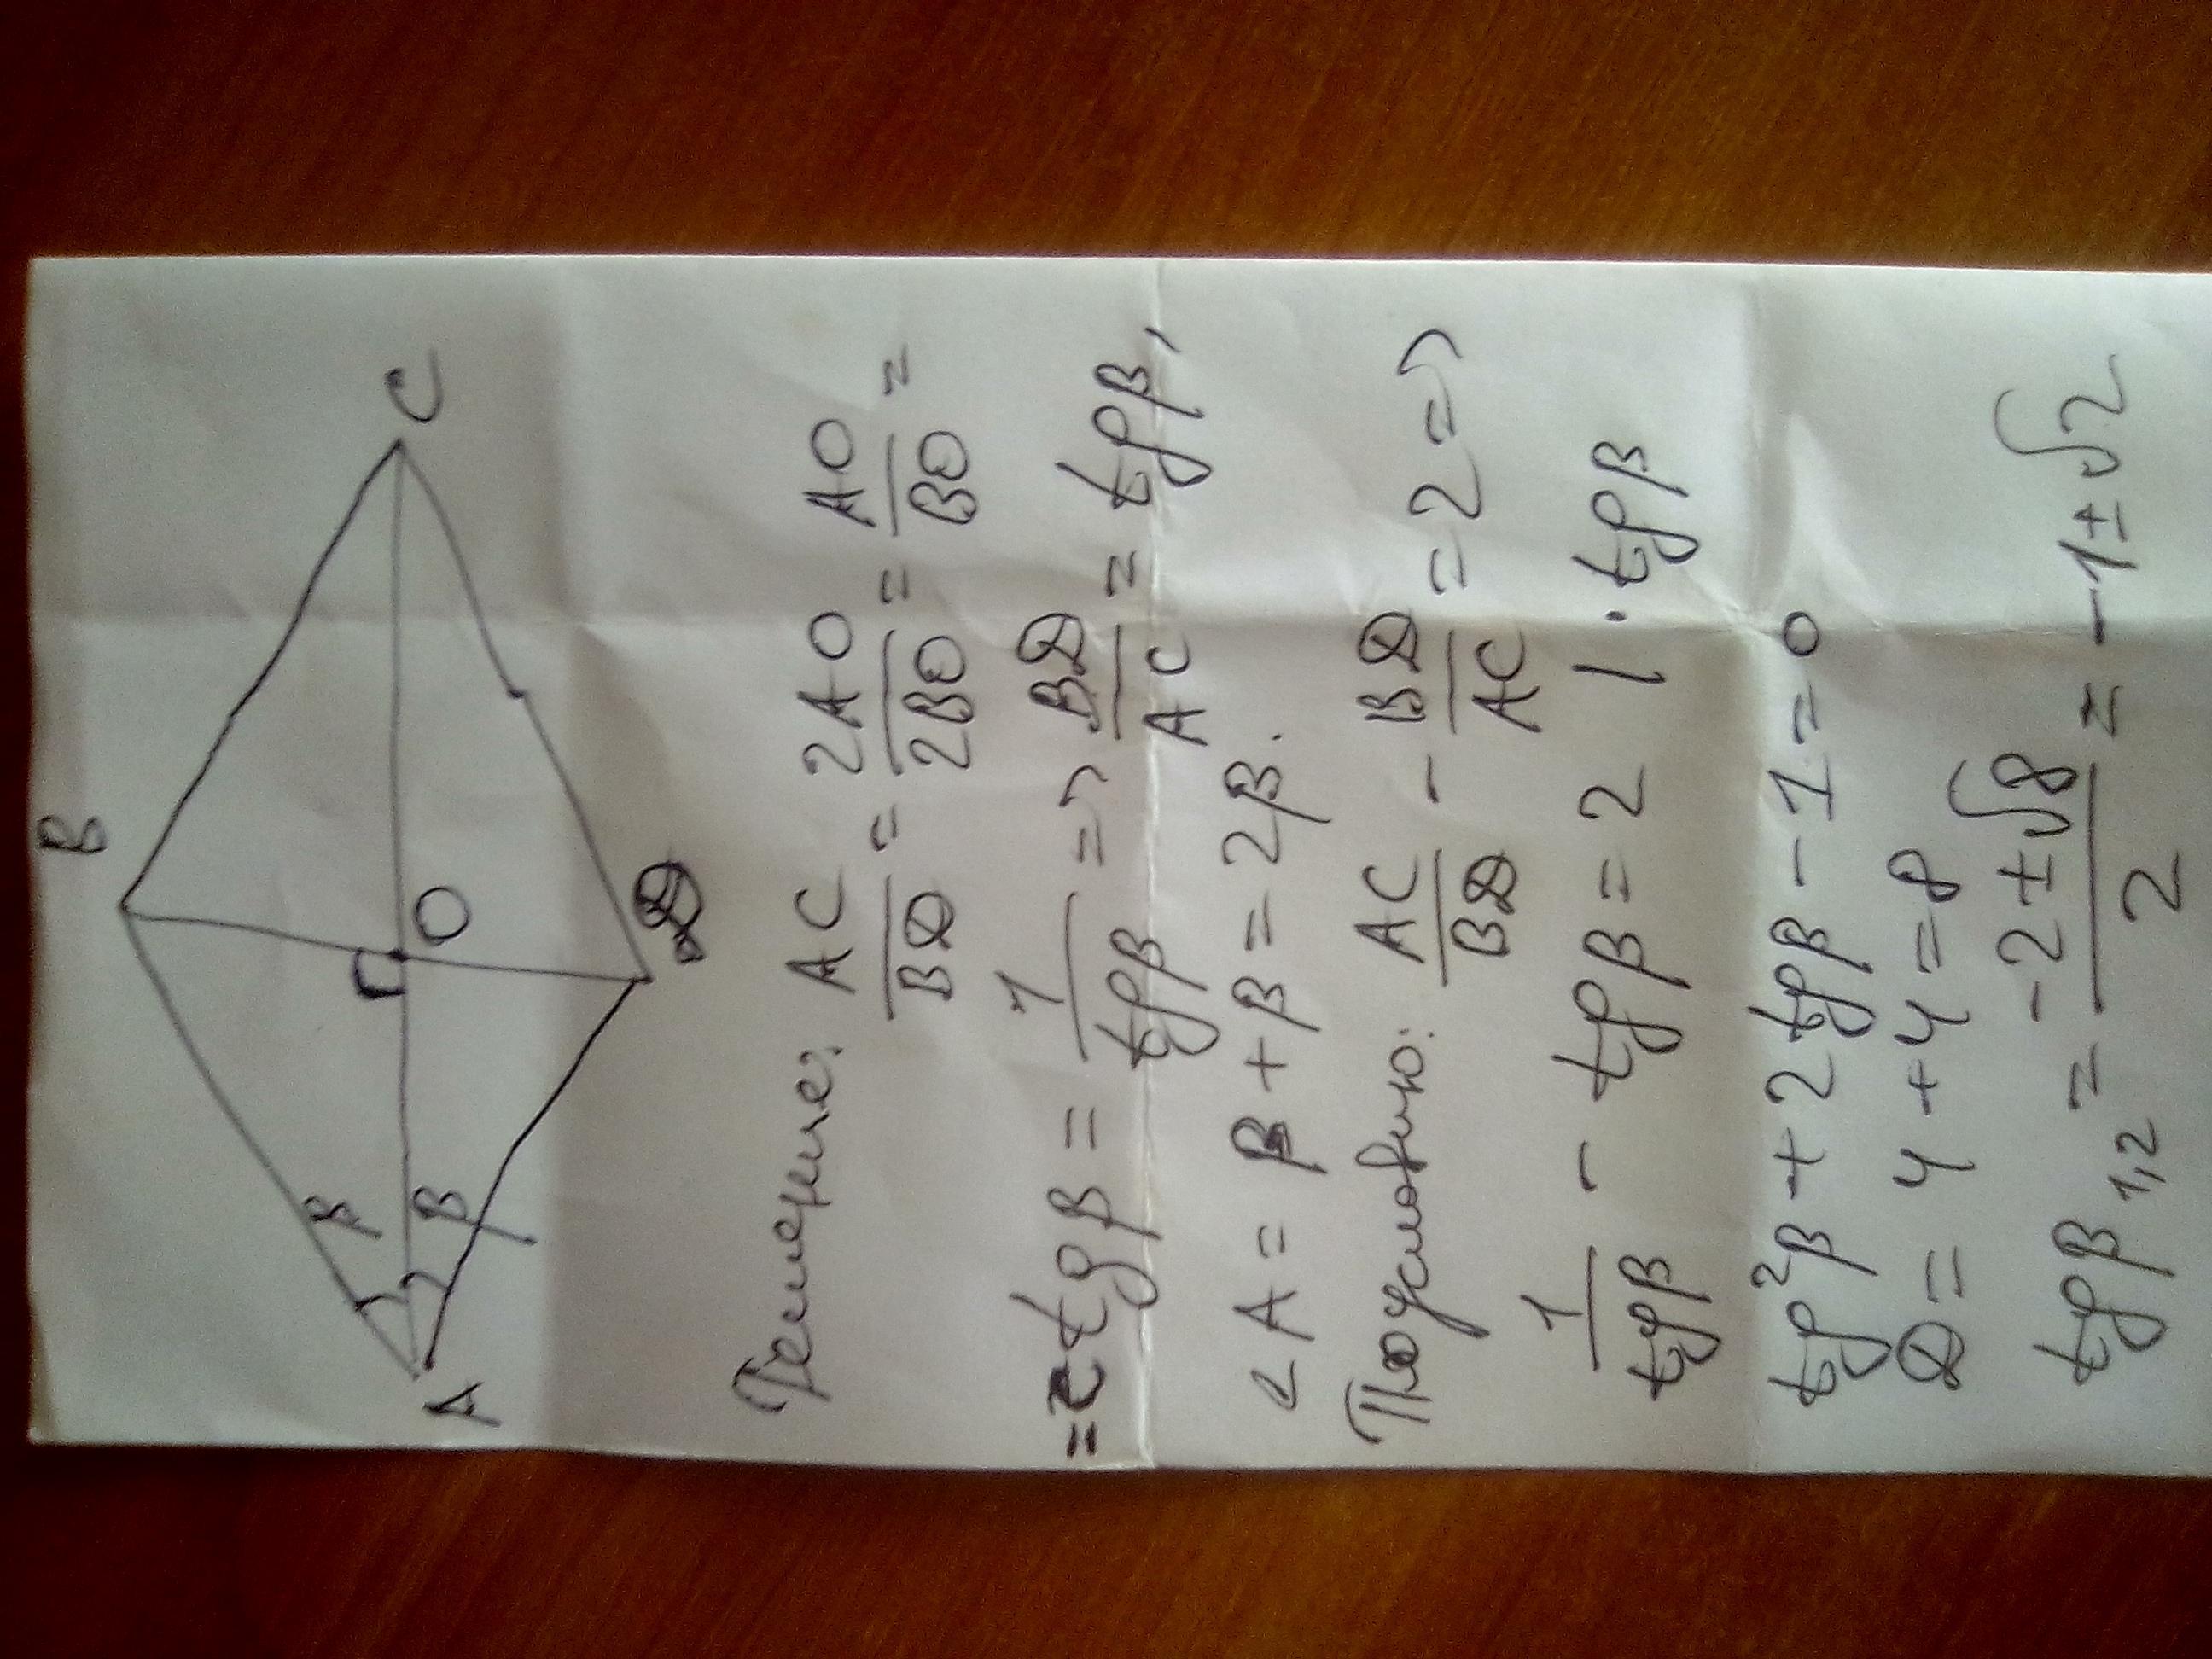 B
A β β O C
D
Решение: AC/BD = 2AO/2BO = AO/BO =
= ctgβ = 1/tgβ => BD/AC = tgβ,
∠A = β + β = 2β.
По условию: AC/BD - BD/AC = 2 =>
1/tgβ - tgβ = 2 | · tgβ
tg²β + 2tgβ - 1 = 0
D = 4 + 4 = 8
tgβ1,2 = (-2 ± √8)/2 = -1 ± √2